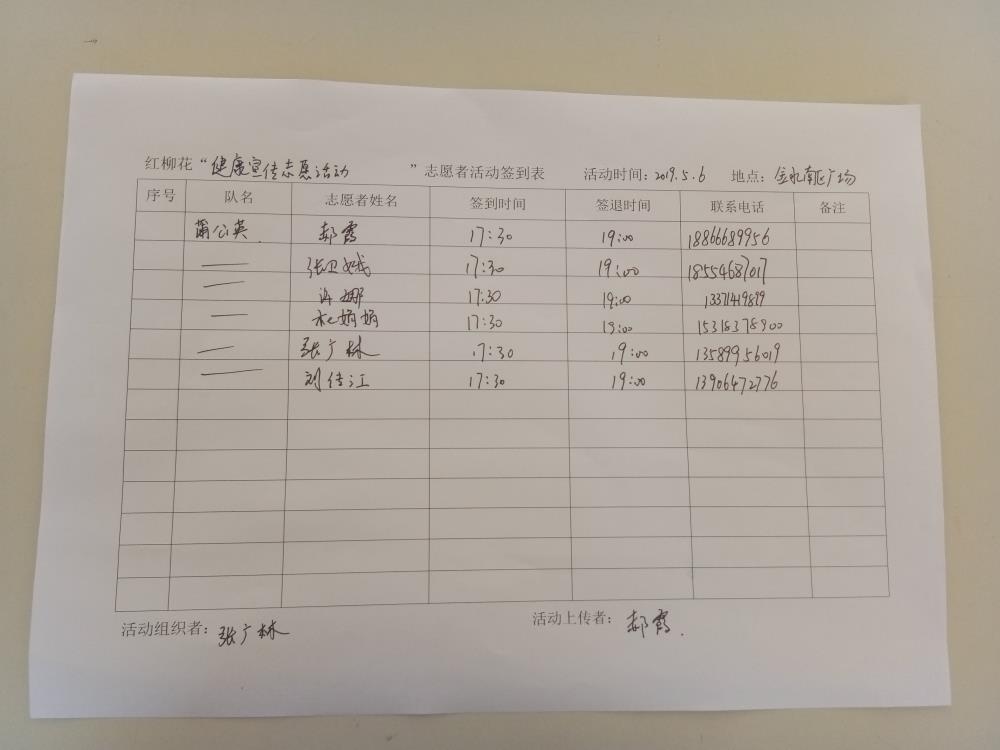 红柳花“健康宣传志愿活动”志愿者活动签到表 活动时间：2019.5.6 地点：金水南区广场
序号 队名 志愿者姓名 签到时间 签退时间 联系电话 备注
蒲公英 郝霞 17:30 19:00 18866689956
—— 张卫娥 17:30 19:00 18554687017
—— 许娜 17:30 19:00 13371419899
—— 杜娟娟 17:30 19:00 15318378900
—— 张广林 17:30 19:00 13589956019
—— 刘传江 17:30 19:00 13906472776
活动组织者：张广林 活动上传者：郝霞.